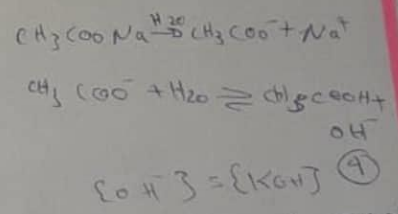 CH3COONa H2O→ CH3COO⁻ + Na⁺
CH3COO⁻ + H2O ⇌ CH3COOH +
OH⁻
{OH⁻} = {KOH} ④